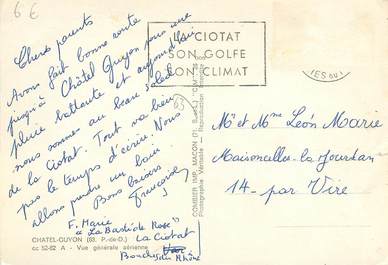 6€
LA CIOTAT
SON GOLFE
SON CLIMAT
Chers parents
Avons fait bonne route
jusqu'à Châtel Guyon sous une
pluie battante et aujourd'hui
nous sommes au beau soleil
de la Ciotat. Tout va bien
pas le temps d'écrire. Nous
allons prendre un bain
Bons baisers.
Françoise
F. Marie
"La Bastide Rose"
La Ciotat
Bouches du Rhône
CHATEL-GUYON (63. P.-de-D.)
cc 52-62 A - Vue générale aérienne
COMBIER IMP. MACON (71. S.-et-L.) "CIM"
Photographie Véritable - Reproduction Interdite
63
Mr et Mme Léon Marie
Maisoncelles la Jourdan
14 - par Vire